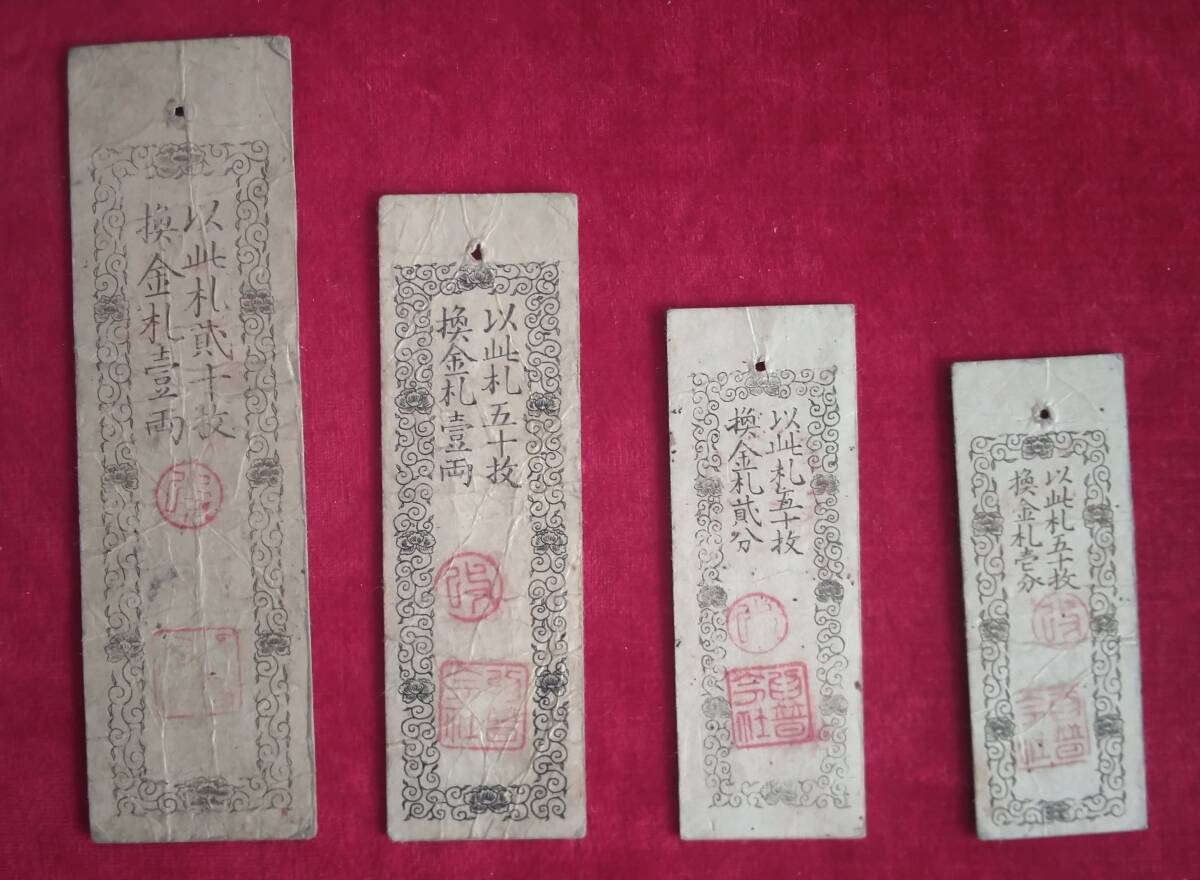 以此札貳十枚
換金札壹両
改
以此札五十枚
換金札壹両
改
以此札五十枚
換金札貳分
以此札五十枚
換金札壱分
改